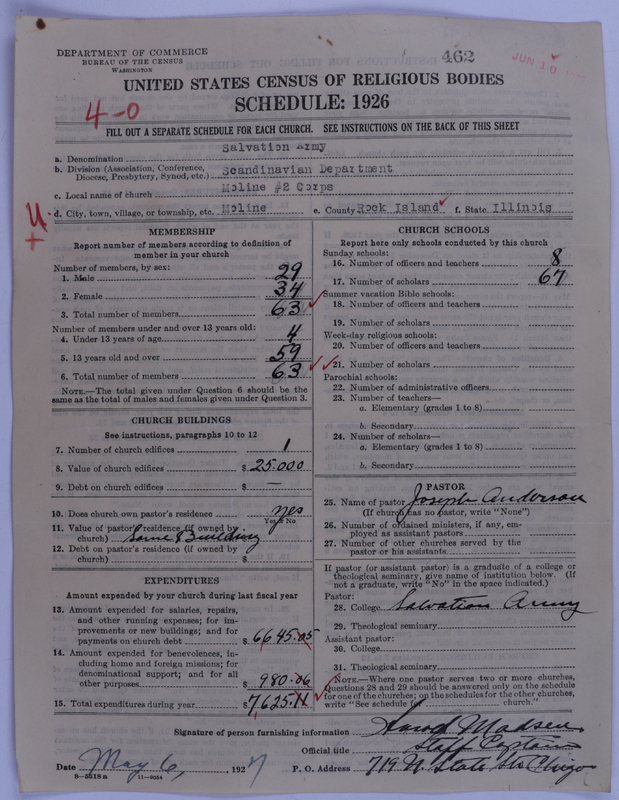 DEPARTMENT OF COMMERCE
BUREAU OF THE CENSUS
WASHINGTON
462
JUN 10
UNITED STATES CENSUS OF RELIGIOUS BODIES
SCHEDULE: 1926
4-0
FILL OUT A SEPARATE SCHEDULE FOR EACH CHURCH. SEE INSTRUCTIONS ON THE BACK OF THIS SHEET
a. Denomination Salvation Army
b. Division (Association, Conference, Diocese, Presbytery, Synod, etc.) Scandinavian Department
c. Local name of church Moline #2 Corps
d. City, town, village, or township, etc. Moline e. County Rock Island f. State Illinois
MEMBERSHIP
Report number of members according to definition of member in your church
Number of members, by sex:
1. Male 29
2. Female 34
3. Total number of members 63
Number of members under and over 13 years old:
4. Under 13 years of age 4
5. 13 years old and over 59
6. Total number of members 63
NOTE.—The total given under Question 6 should be the same as the total of males and females given under Question 3.
CHURCH BUILDINGS
See instructions, paragraphs 10 to 12
7. Number of church edifices 1
8. Value of church edifices $ 25.000
9. Debt on church edifices $ —
10. Does church own pastor's residence yes
Yes or No
11. Value of pastor's residence (if owned by church) Same & Building
12. Debt on pastor's residence (if owned by church) $
EXPENDITURES
Amount expended by your church during last fiscal year
13. Amount expended for salaries, repairs, and other running expenses; for improvements or new buildings; and for payments on church debt $ 6645.05
14. Amount expended for benevolences, including home and foreign missions; for denominational support; and for all other purposes $ 980.06
15. Total expenditures during year $ 7,625.11
CHURCH SCHOOLS
Report here only schools conducted by this church
Sunday schools:
16. Number of officers and teachers 8
17. Number of scholars 67
Summer vacation Bible schools:
18. Number of officers and teachers
19. Number of scholars
Week-day religious schools:
20. Number of officers and teachers
21. Number of scholars
Parochial schools:
22. Number of administrative officers
23. Number of teachers—
a. Elementary (grades 1 to 8)
b. Secondary
24. Number of scholars—
a. Elementary (grades 1 to 8)
b. Secondary
PASTOR
25. Name of pastor Joseph Anderson
(If church has no pastor, write "None")
26. Number of ordained ministers, if any, employed as assistant pastors
27. Number of other churches served by the pastor or his assistants
If pastor (or assistant pastor) is a graduate of a college or theological seminary, give name of institution below. (If not a graduate, write "No" in the space indicated.)
Pastor:
28. College Salvation Army
29. Theological seminary
Assistant pastor:
30. College
31. Theological seminary
NOTE.—Where one pastor serves two or more churches, Questions 28 and 29 should be answered only on the schedule for one of the churches; on the schedules for the other churches, write "See schedule for church."
Signature of person furnishing information Madsen
Official title Staff Captain
Date May 6, 1927 P. O. Address 719 N. State St. Chicago
8-5518a 11-9054